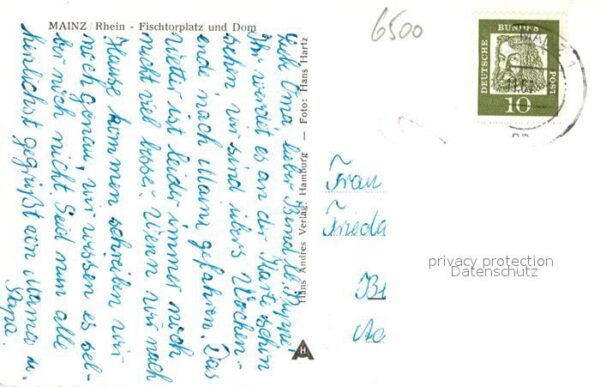 MAINZ/Rhein - Fischtorplatz und Dom
6500
DEUTSCHE BUNDESPOST
10
Liebe Oma, lieber Bernd u. Puppe!
Ihr werdet es an der Karte schon
sehen wir sind übers Wochen-
ende nach Mainz gefahren. Das
Wetter ist leider immer noch
nicht viel besser. Wenn wir nach
Hause kommen schreiben wir
noch genau, wir wissen es sel-
ber noch nicht. Seid nun alle
herzlichst gegrüßt von Mama u.
Papa.
Hans Andres Verlag, Hamburg — Foto: Hans Hartz
H
Frau
Frieda
privacy protection
Datenschutz